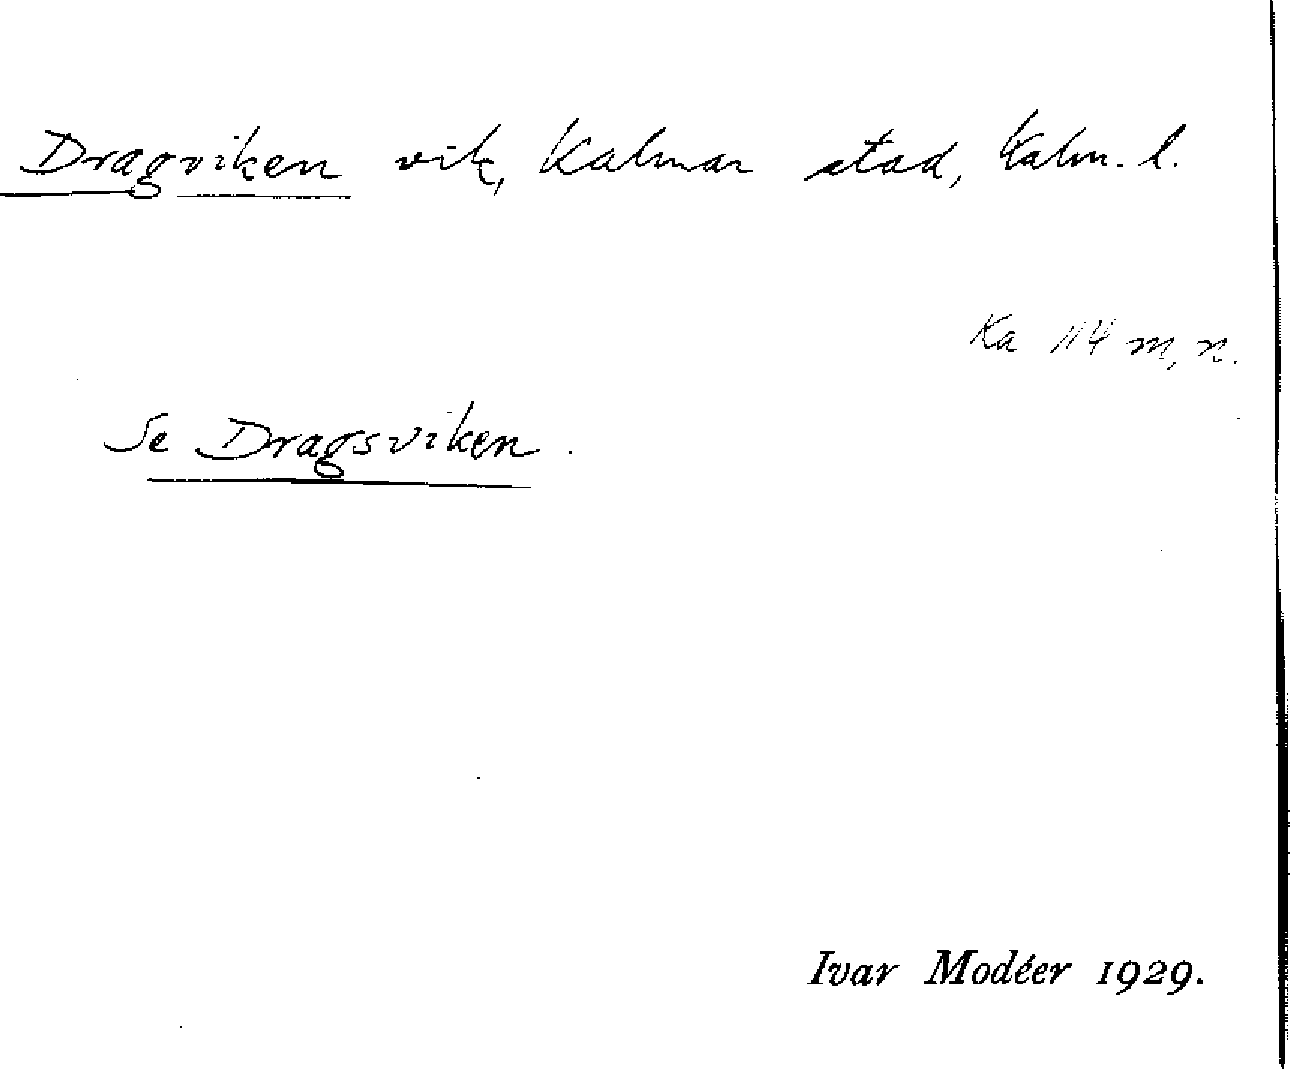 Dragviken vik, Kalmar stad, Kalm. l.
Ka 114 m, n.
Se Dragsviken.
Ivar Modéer 1929.